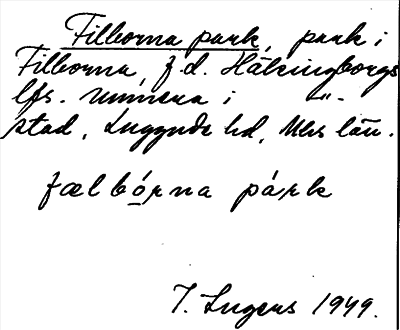 Filborna park, park i
Filborna, f.d. Hälsingborgs
lfs. numera i   "-
stad, Luggude hd, Mhs län.
fælbórna párk
I. Ingers 1949.